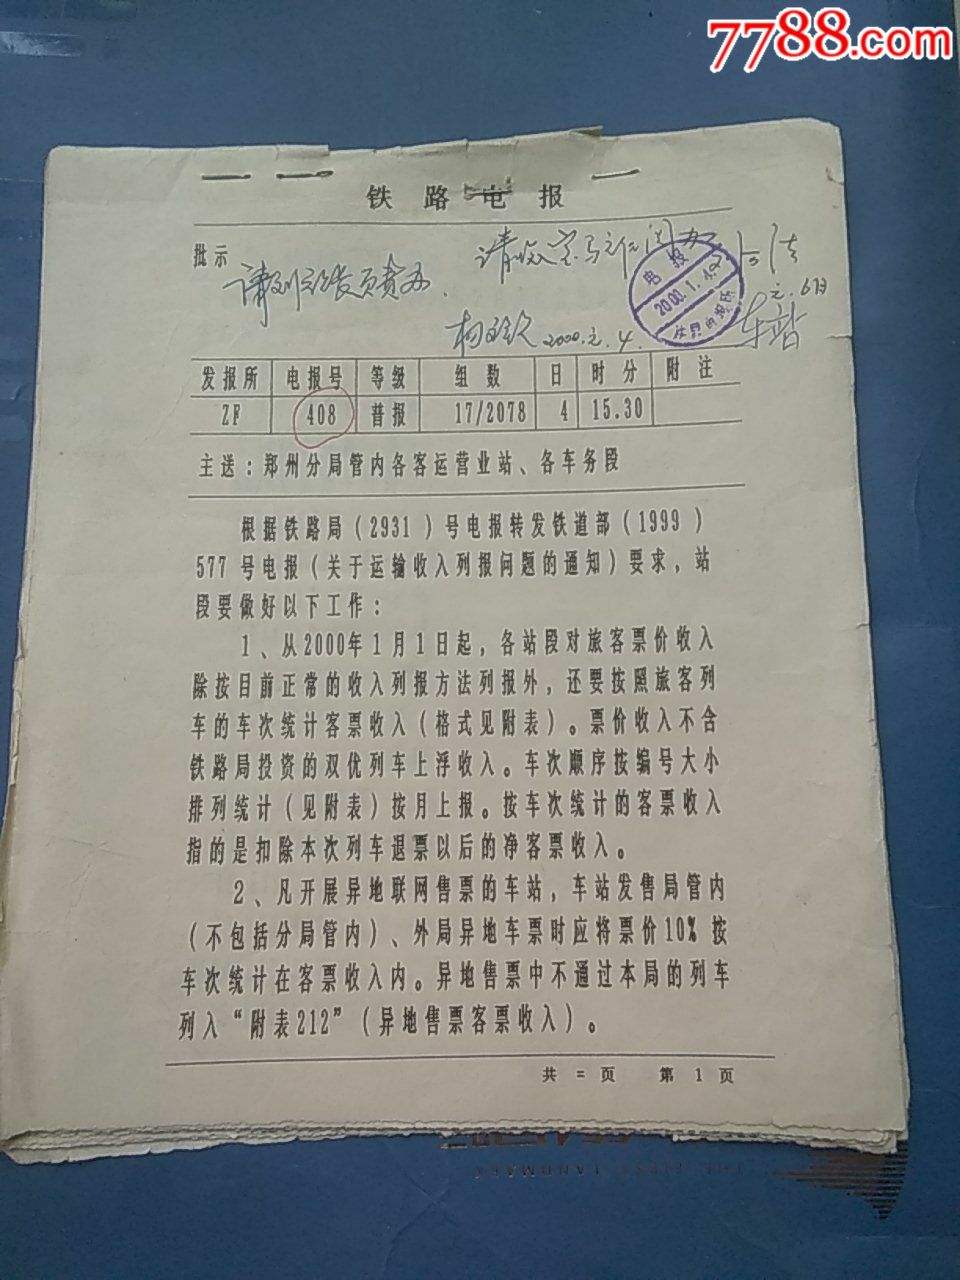 7788.com
铁路电报
批示
2000.元.4.
车站
电报
2000.1.4
发报所 电报号 等级 组数 日 时分 附注
ZF 408 普报 17/2078 4 15.30
主送:郑州分局管内各客运营业站、各车务段
根据铁路局(2931)号电报转发铁道部(1999)
577号电报(关于运输收入列报问题的通知)要求,站
段要做好以下工作:
1、从2000年1月1日起,各站段对旅客票价收入
除按目前正常的收入列报方法列报外,还要按照旅客列
车的车次统计客票收入(格式见附表)。票价收入不含
铁路局投资的双优列车上浮收入。车次顺序按编号大小
排列统计(见附表)按月上报。按车次统计的客票收入
指的是扣除本次列车退票以后的净客票收入。
2、凡开展异地联网售票的车站,车站发售局管内
(不包括分局管内)、外局异地车票时应将票价10%按
车次统计在客票收入内。异地售票中不通过本局的列车
列入“附表212”(异地售票客票收入)。
共 = 页 第 1 页